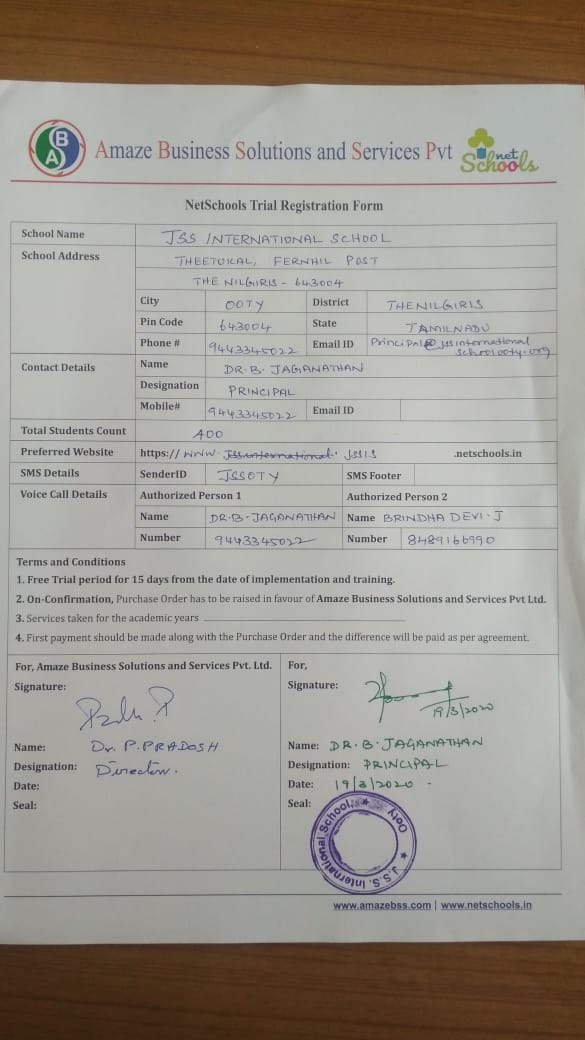 Amaze Business Solutions and Services Pvt
net Schools
NetSchools Trial Registration Form
School Name JSS INTERNATIONAL SCHOOL
School Address THEETUKAL, FERNHIL POST
THE NILGIRIS - 643004
City OOTY District THENILGIRIS
Pin Code 643004 State TAMILNADU
Phone # 9443345022 Email ID Principal@jssinternational
schoolooty.org
Contact Details Name DR. B. JAGANATHAN
Designation PRINCIPAL
Mobile# 9443345022 Email ID
Total Students Count 400
Preferred Website https:// WWW. Jssinternational. JSSIS .netschools.in
SMS Details SenderID JSSOTY SMS Footer
Voice Call Details Authorized Person 1 Authorized Person 2
Name DR-B-JAGANATHAN Name BRINDHA DEVI. J
Number 9443345022 Number 8489166990
Terms and Conditions
1. Free Trial period for 15 days from the date of implementation and training.
2. On-Confirmation, Purchase Order has to be raised in favour of Amaze Business Solutions and Services Pvt Ltd.
3. Services taken for the academic years
4. First payment should be made along with the Purchase Order and the difference will be paid as per agreement.
For, Amaze Business Solutions and Services Pvt. Ltd. For,
Signature: Signature:
19/3/2020
Name: Dr. P. PRADOSH Name: DR. B. JAGANATHAN
Designation: Director. Designation: PRINCIPAL
Date: Date: 19/3/2020.
Seal: Seal:
J.S.S. International School, Ooty
www.amazebss.com | www.netschools.in